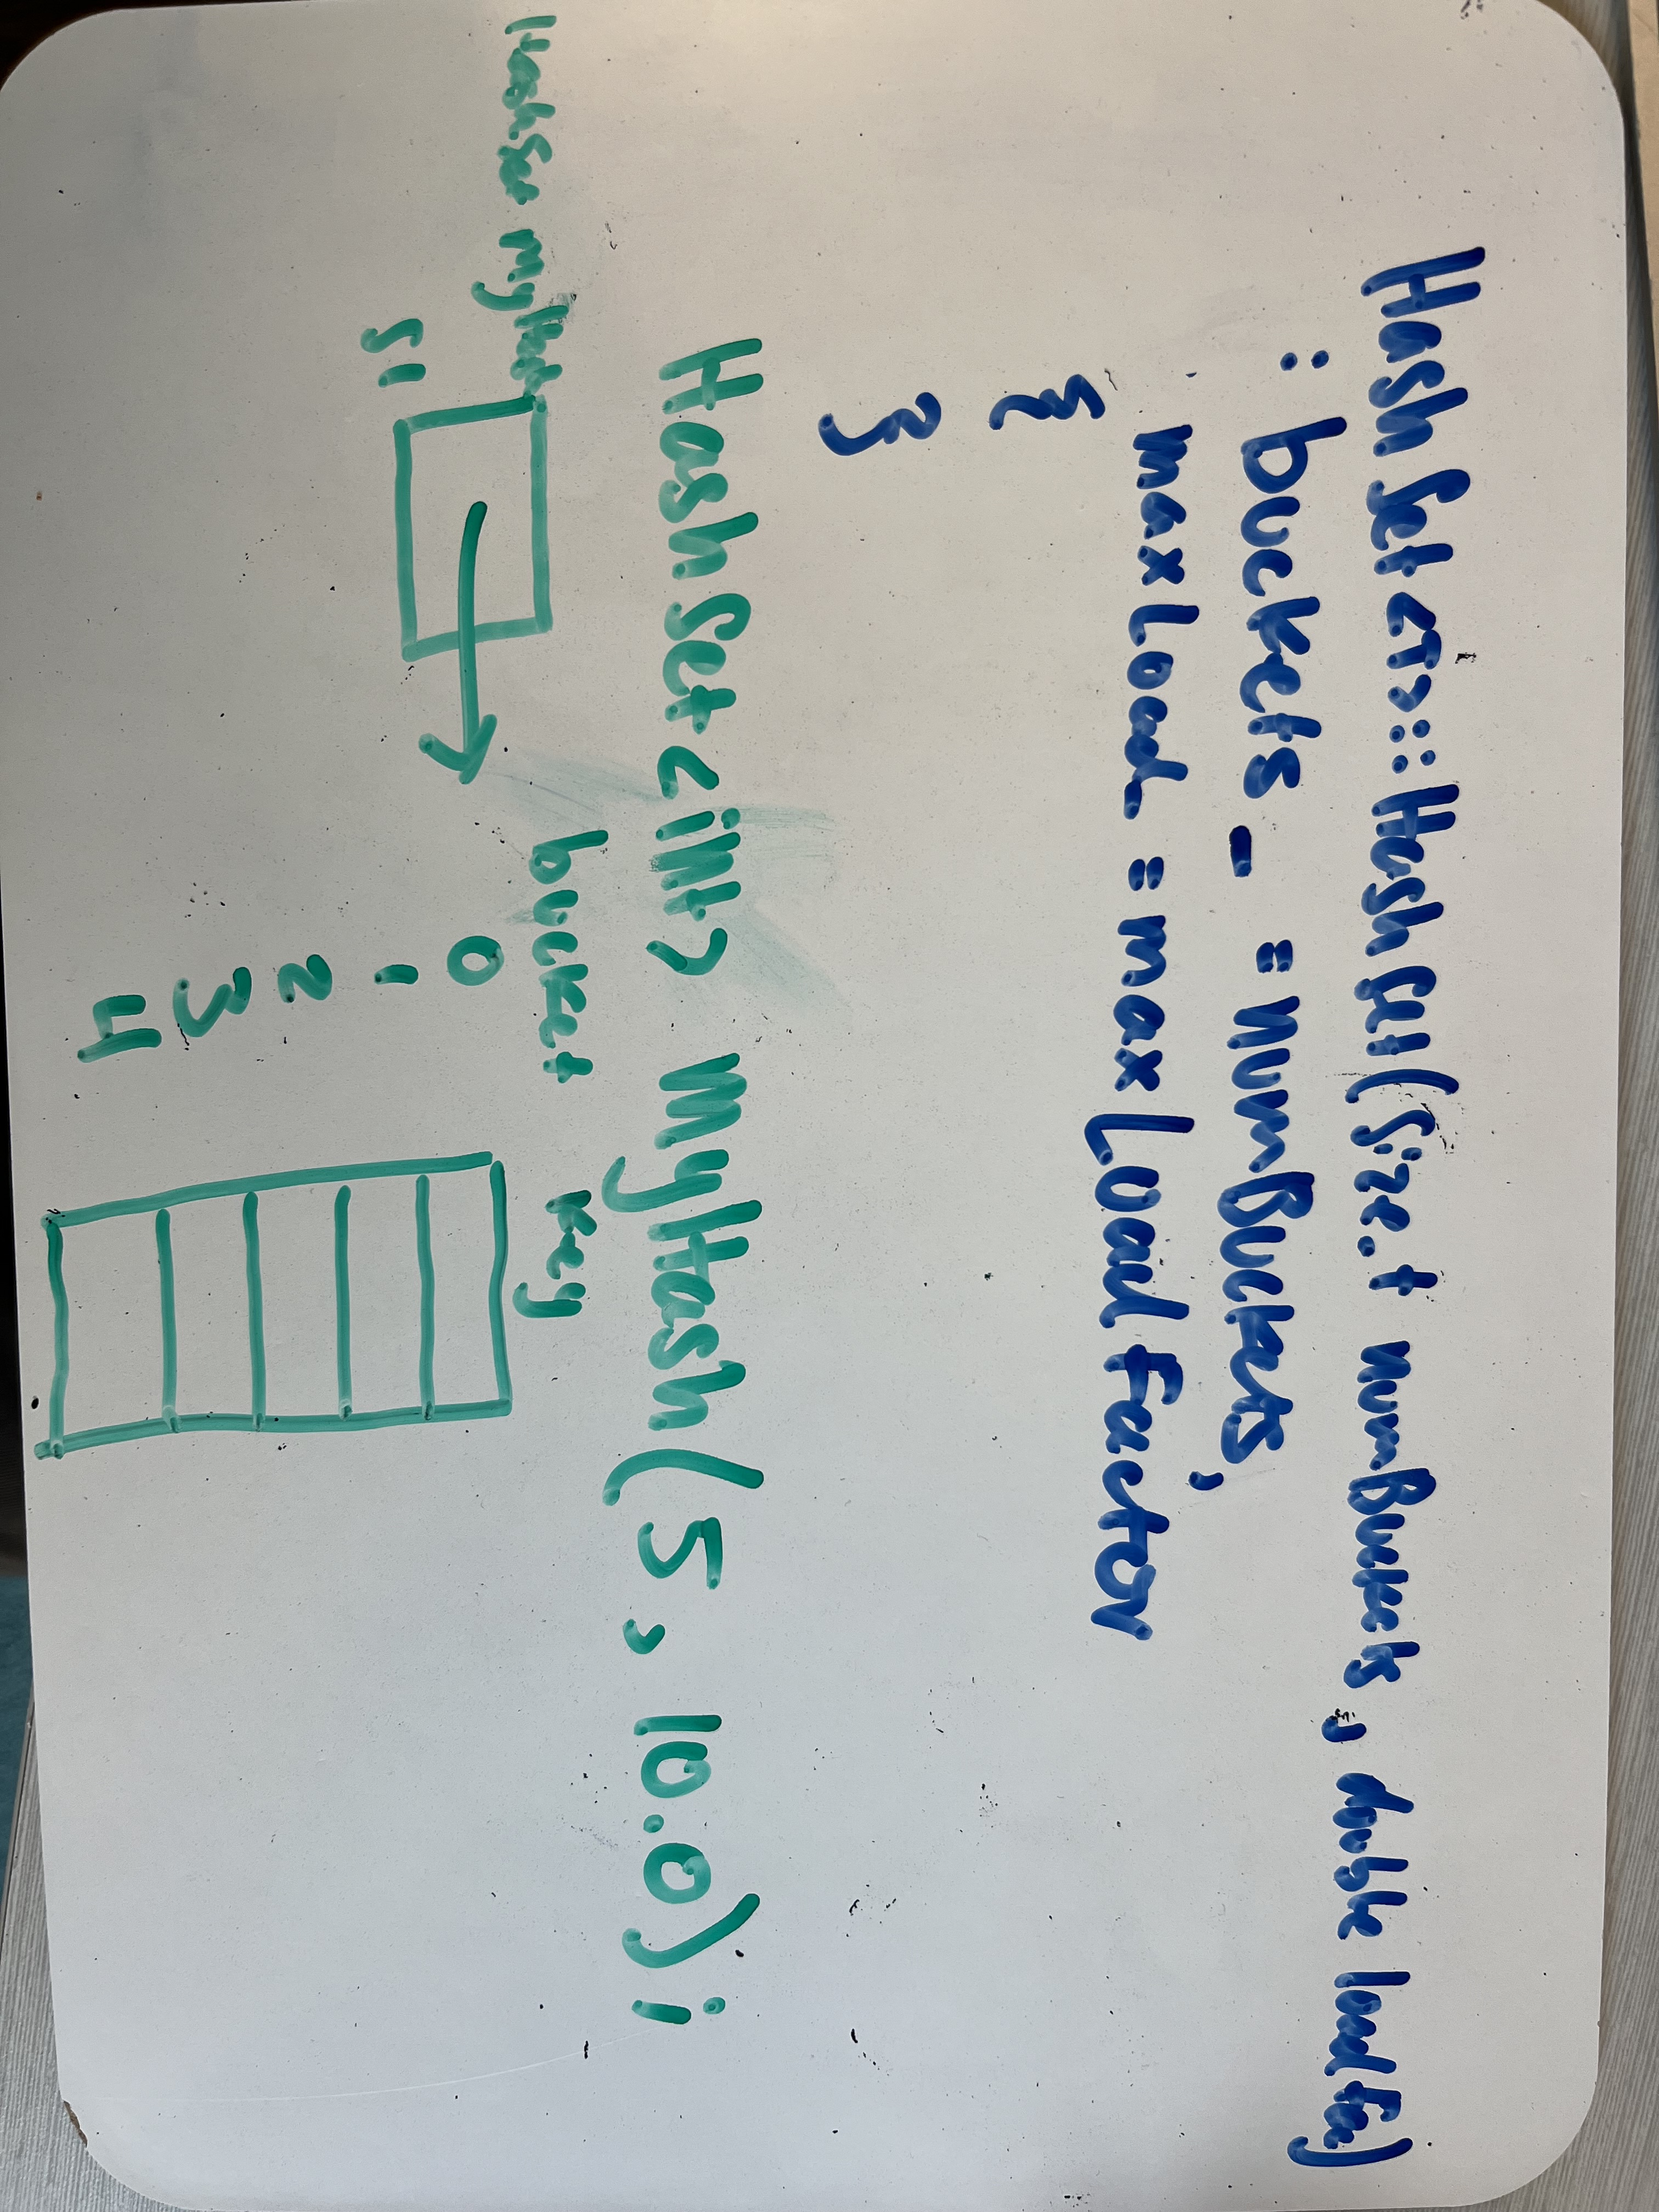 HashSet<T>::HashSet(size_t numBuckets, double loadFac)
: buckets_ = numBuckets,
maxLoad_ = maxLoadFactor
{
}
HashSet<int> myHash(5, 10.0);
HashSet myHash
s1
bucket key
0
1
2
3
4